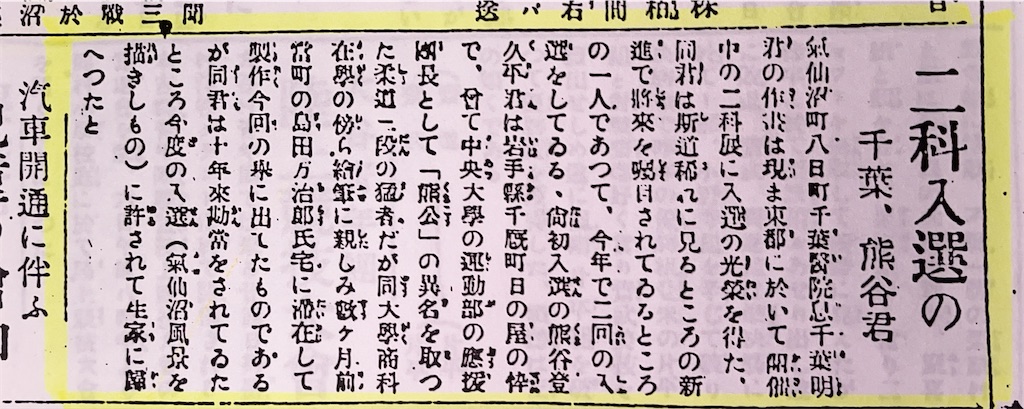 二科入選の
千葉、熊谷君
氣仙沼町八日町千葉醫院息千葉明
君の作品は現ま東都に於いて開催
中の二科展に入選の光榮を得た、
同君は斯道稀れに見るところの新
進で將來を囑目されてゐるところ
の一人であつて、今年で二回の入
選をしてゐる、尙初入選の熊谷登
久平君は岩手縣千厩町日の屋の悴
で、曾て中央大學の運動部の應援
團長として「熊公」の異名を取つ
た柔道二段の猛者だが同大學商科
在學の傍ら繪筆に親しみ數ヶ月前
當町の島田万治郎氏宅に滯在して
製作今回の擧に出したものである
が同君は十年來勘當をされてゐた
ところ今度の入選(氣仙沼風景を
描きしもの)に許されて生家に歸
へつたと
汽車開通に伴ふ